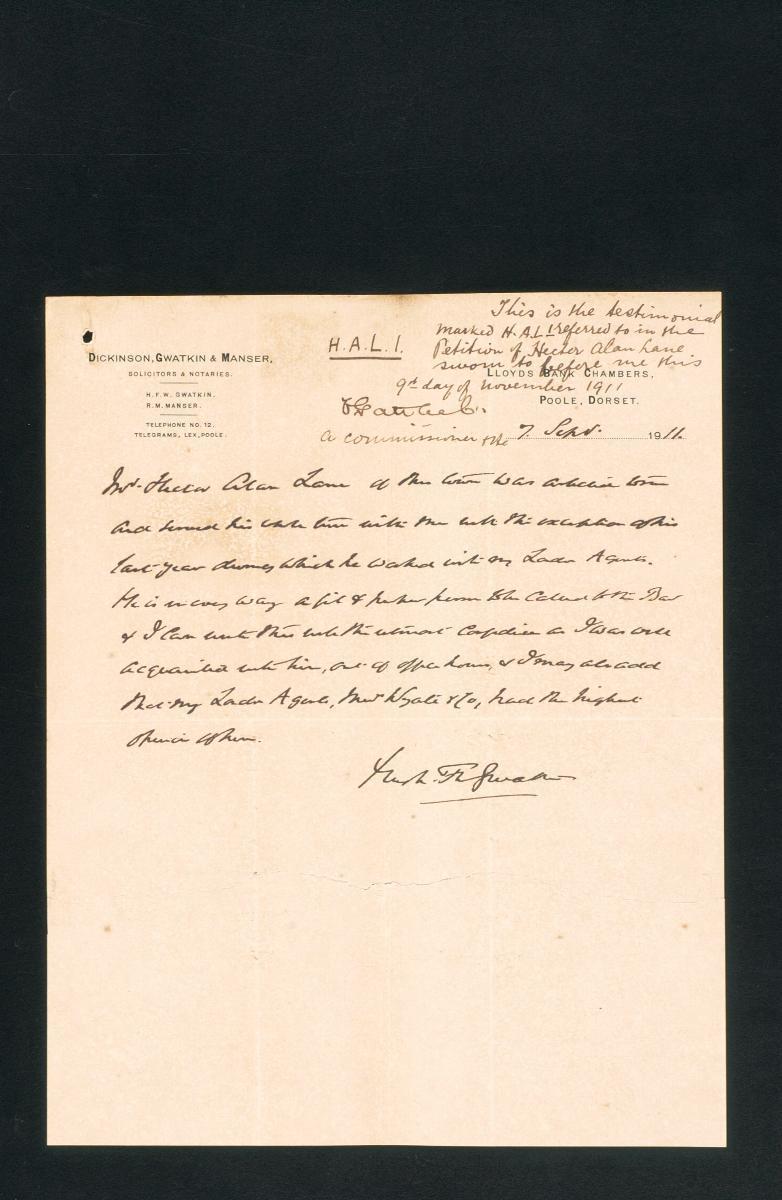 This is the testimonial
marked H.A.L 1 referred to in the
Petition of Hector Alan Lane
sworn to before me this
9th day of November 1911
H.A.L.1.
A commissioner &c
DICKINSON, GWATKIN & MANSER,
SOLICITORS & NOTARIES.
H.F.W. GWATKIN.
R.M. MANSER.
TELEPHONE NO. 12.
TELEGRAMS, LEX, POOLE.
LLOYDS BANK CHAMBERS,
POOLE, DORSET.
7. Sept. 1911.
Mr. Hector Alan Lane of this town was articled to me
and served his whole time with me with the exception of his
last year during which he worked with my London Agents.
He is in every way a fit & proper person to be Called to the Bar
& I can write this with the utmost confidence as I was well
acquainted with him, out of office hours, & I may also add
that my London Agents, Messrs & Co, had the highest
opinion of him.
Hugh F.W. Gwatkin